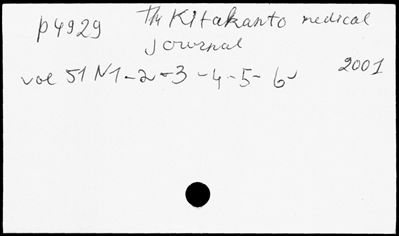 p4929 Th Kitakanto medical
journal
vol 51 N1-2-3-4-5-6- 2001